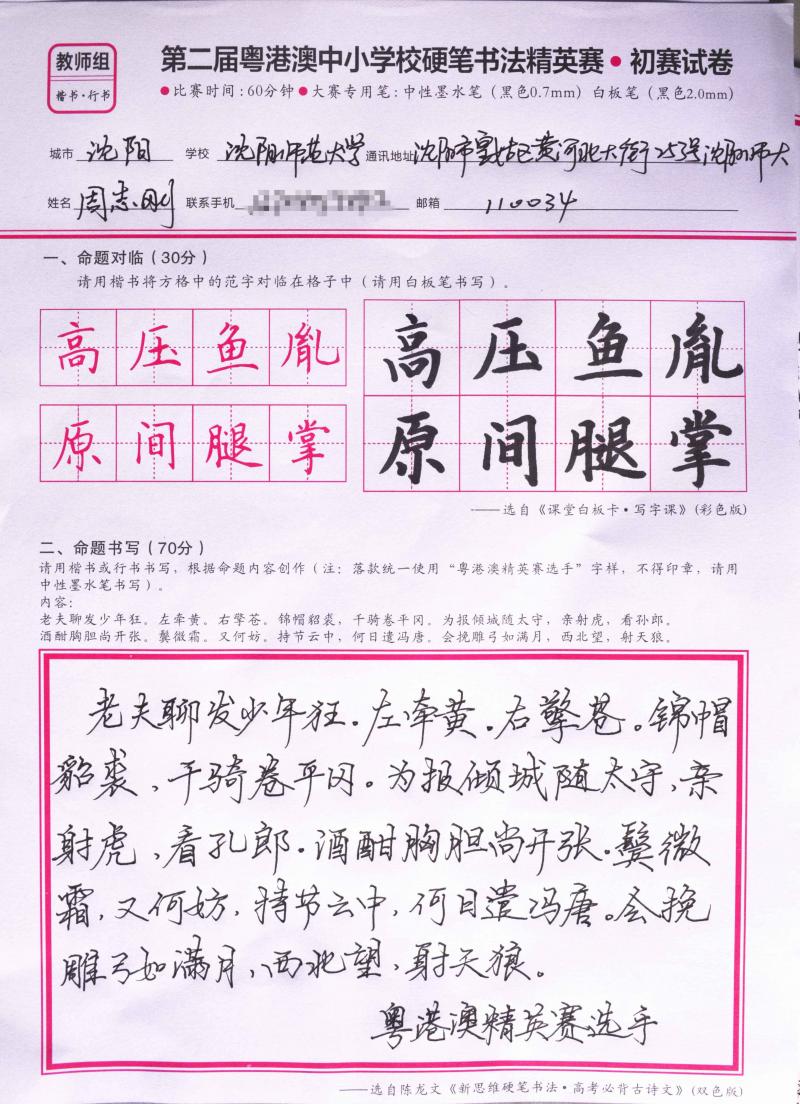 教师组
楷书·行书
第二届粤港澳中小学校硬笔书法精英赛·初赛试卷
●比赛时间:60分钟●大赛专用笔:中性墨水笔(黑色0.7mm)白板笔(黑色2.0mm)
城市 沈阳 学校 沈阳师范大学 通讯地址 沈阳市皇姑区黄河北大街253号沈阳师大
姓名 周志刚 联系手机 邮箱 110034
一、命题对临(30分)
请用楷书将方格中的范字对临在格子中(请用白板笔书写)。
高压鱼胤
原间腿掌
高压鱼胤
原间腿掌
——选自《课堂白板卡·写字课》(彩色版)
二、命题书写(70分)
请用楷书或行书书写,根据命题内容创作(注:落款统一使用“粤港澳精英赛选手”字样,不得印章,请用
中性墨水笔书写)。
内容:
老夫聊发少年狂。左牵黄。右擎苍。锦帽貂裘,千骑卷平冈。为报倾城随太守,亲射虎,看孙郎。
酒酣胸胆尚开张。鬓微霜。又何妨。持节云中,何日遣冯唐。会挽雕弓如满月,西北望,射天狼。
老夫聊发少年狂。左牵黄。右擎苍。锦帽
貂裘,千骑卷平冈。为报倾城随太守,亲
射虎,看孔郎。酒酣胸胆尚开张。鬓微
霜,又何妨,持节云中,何日遣冯唐。会挽
雕弓如满月,西北望,射天狼。
粤港澳精英赛选手
——选自陈龙文《新思维硬笔书法·高考必背古诗文》(双色版)